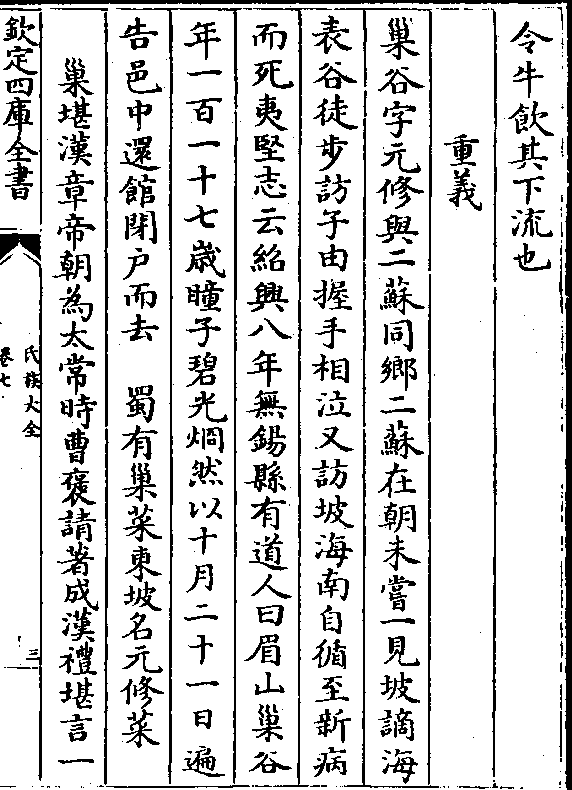 令牛飲其下流也
重義
巢谷字元修與二蘇同鄉二蘇在朝未嘗一見坡謫海
表谷徒步訪子由握手相泣又訪坡海南自循至新病
而死夷堅志云紹興八年無錫縣有道人曰眉山巢谷
年一百一十七歲瞳子碧光烱然以十月二十一日遍
告邑中還館閉户而去　蜀有巢菜東坡名元修菜
巢堪漢章帝朝為太常時曹褒請著成漢禮堪言一
欽定四庫全書
氏族大全
卷七
三